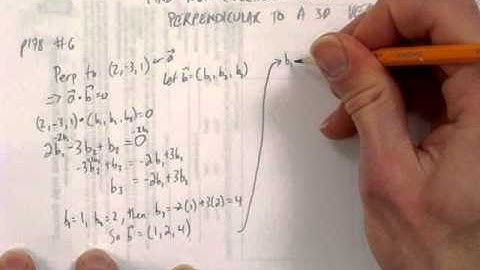 PERPENDICULAR TO A 3D
p198 #6
Perp to (2,-3,1) or a⃗
Let b⃗=(b₁, b₂, b₃)
⇒ a⃗·b⃗=0
(2,-3,1)•(b₁, b₂, b₃)=0
2b₁-3b₂+b₃=0
-2b₁ -2b₁
-3b₂+b₃ = -2b₁+3b₂
b₃ = -2b₁+3b₂
b₁=1, b₂=2, then b₃=-2(1)+3(2)=4
So b⃗=(1,2,4)
→b₁